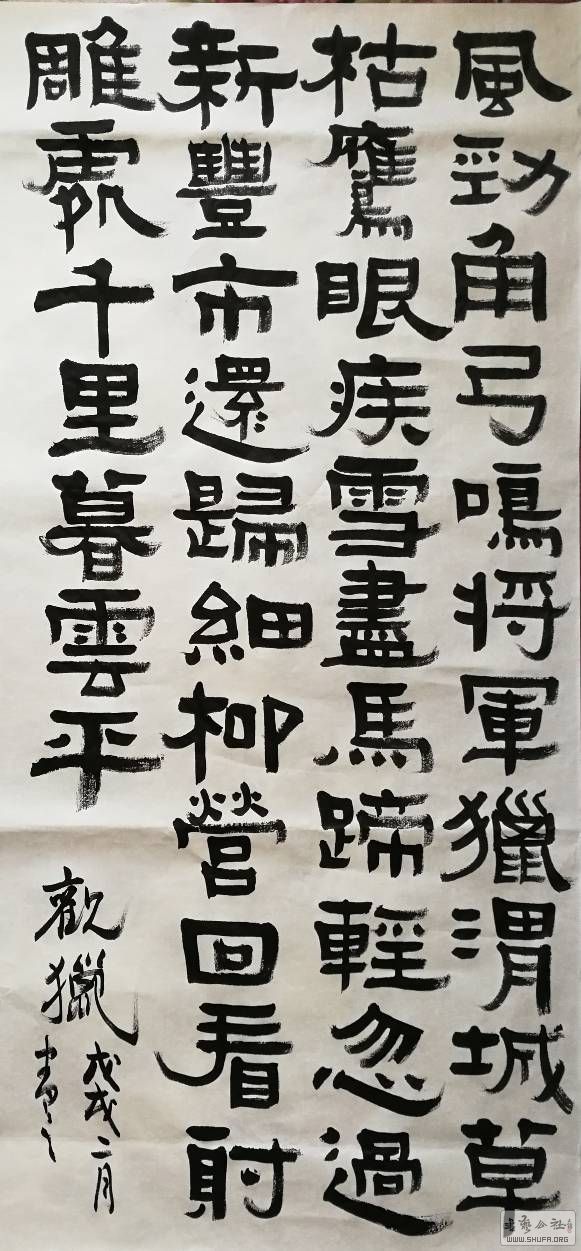 風勁角弓鳴将軍獵渭城草
枯鷹眼疾雪盡馬蹄輕忽過
新豐市還歸細柳營回看射
雕處千里暮雲平
觀獵
戊戌二月
書之
书艺公社
WWW.SHUFA.ORG